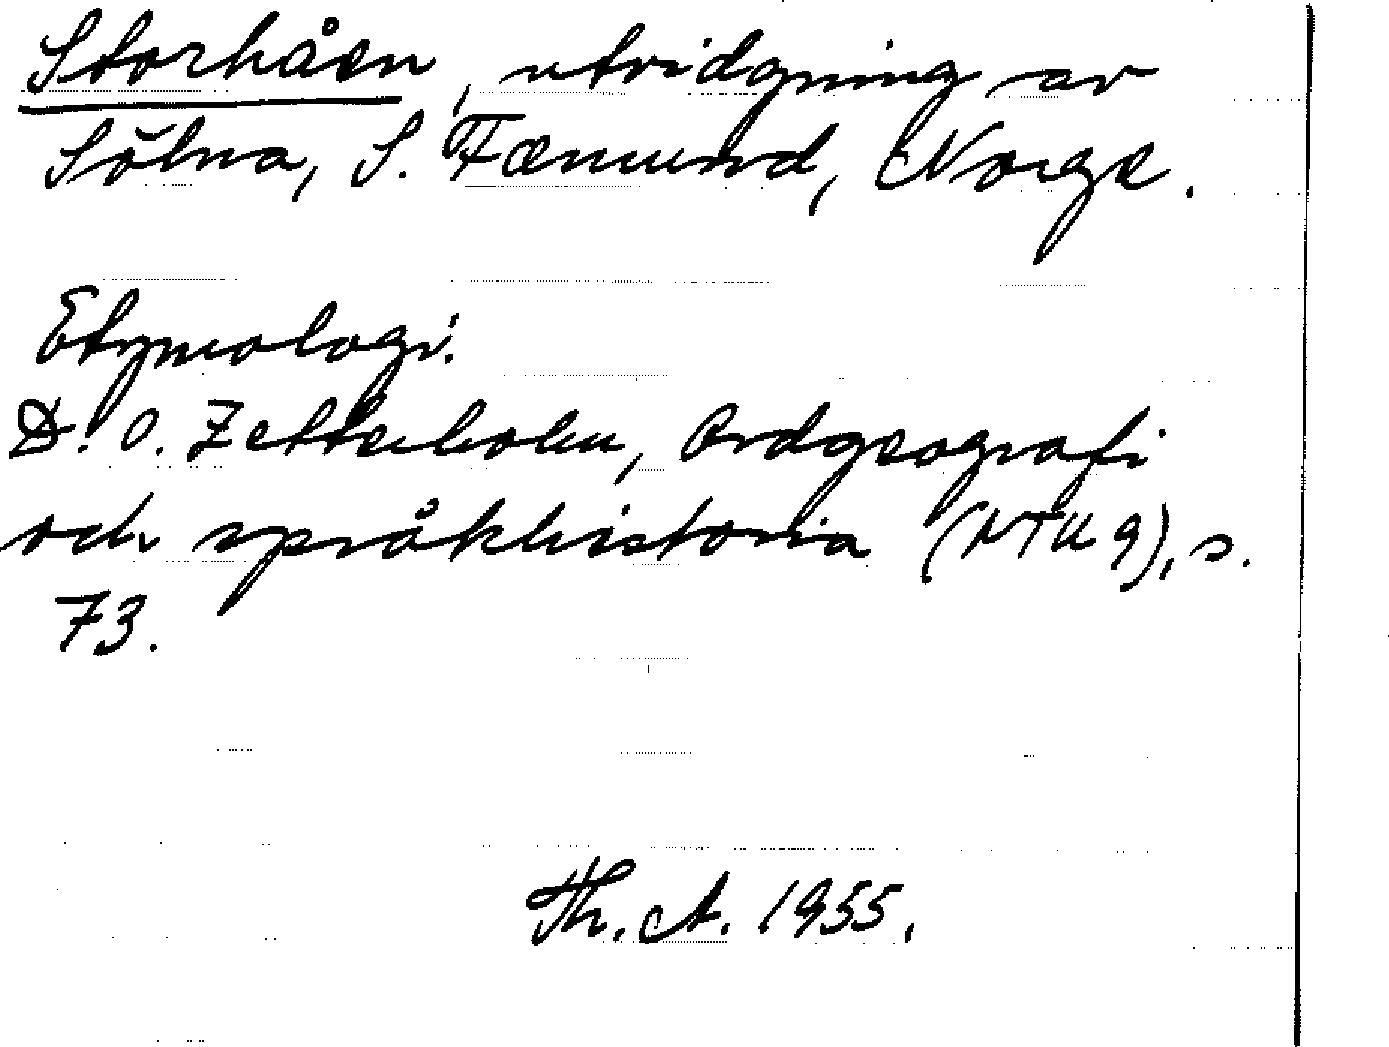 Storhåen, utvidgning av
Sölna, S. Fæmund, Norge.
Etymologi.
D. O. Zetterholm, Ordgeografi
och språkhistoria (NTU 9), s.
73.
Th. A. 1955.